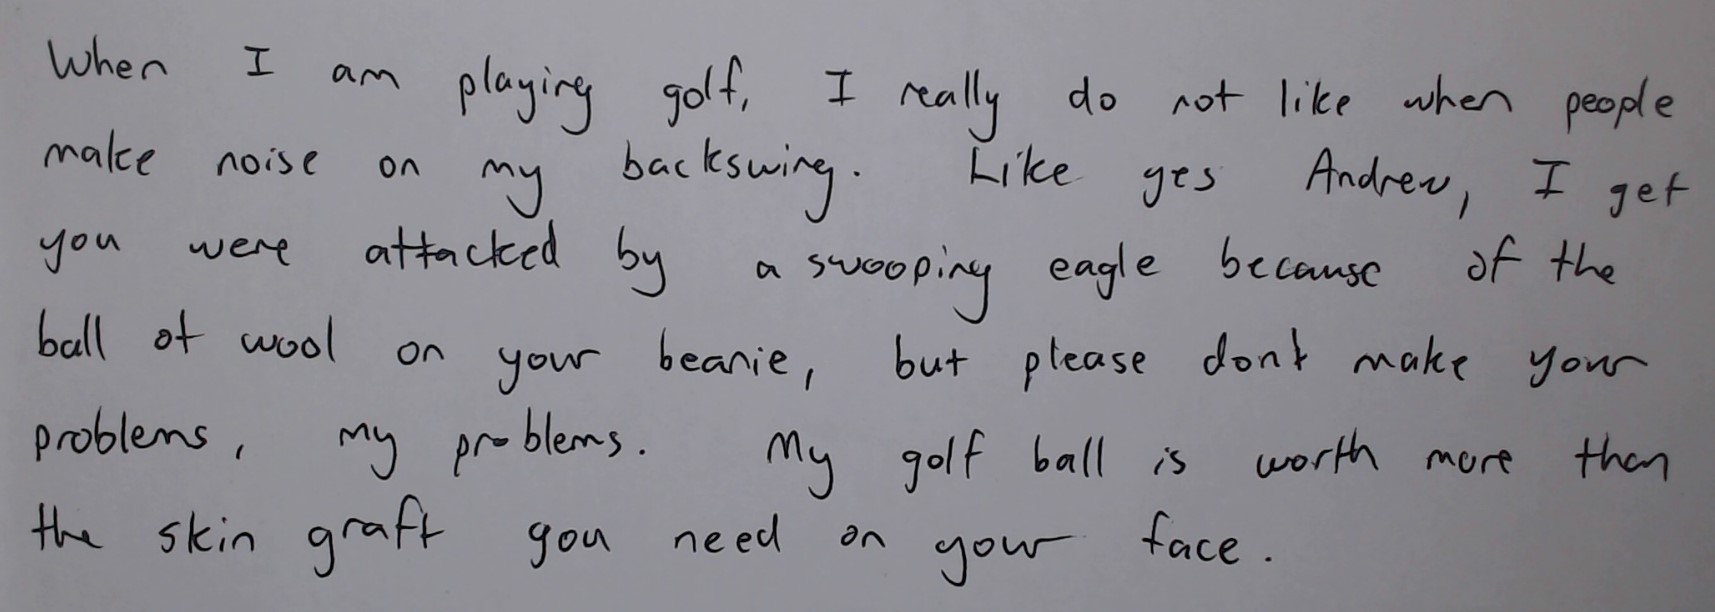 When I am playing golf, I really do not like when people
make noise on my backswing. Like yes Andrew, I get
you were attacked by a swooping eagle because of the
ball of wool on your beanie, but please dont make your
problems, my problems. My golf ball is worth more than
the skin graft you need on your face.